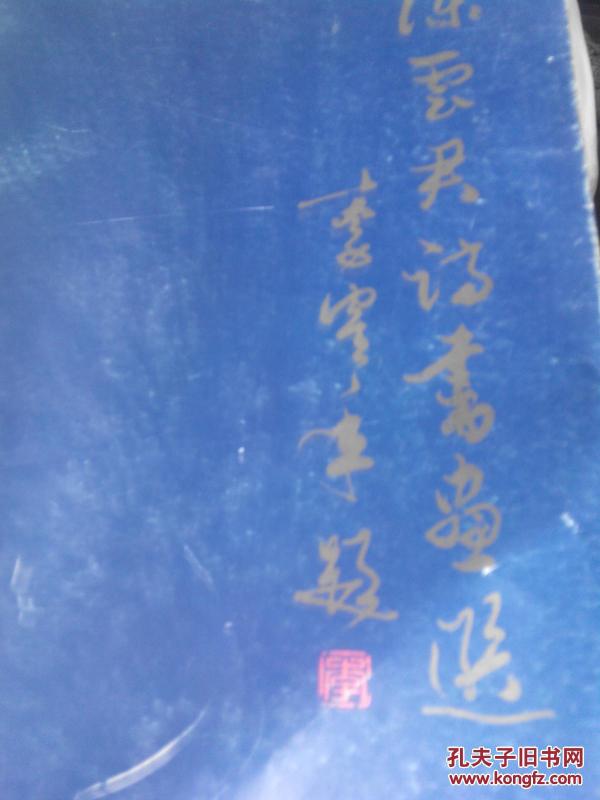 陳雲君詩書畫選
題
孔夫子旧书网
www.kongfz.com